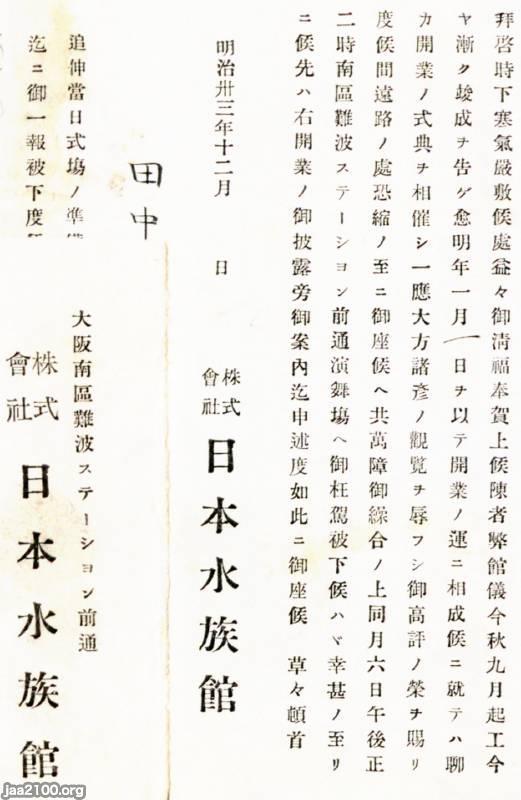 拜啓時下寒氣嚴敷候處益々御淸福奉賀上候陳者弊館儀今秋九月起工今
ヤ漸ク竣成ヲ告ゲ愈明年一月一日ヲ以テ開業ノ運ニ相成候ニ就テハ聊
カ開業ノ式典ヲ相催シ一應大方諸彥ノ觀覽ヲ辱フシ御高評ノ榮ヲ賜リ
度候間遠路ノ處恐縮ノ至ニ御座候ヘ共萬障御繰合ノ上同月六日午後正
二時南區難波ステーション前通演舞塲ヘ御枉駕被下候ハヾ幸甚ノ至リ
ニ候先ハ右開業ノ御披露旁御案內迄申述度如此ニ御座候 草々頓首
明治卅三年十二月 日
株式會社 日本水族館
田中
追伸當日式塲ノ準
迄ニ御一報被下度
大阪南區難波ステーション前通
株式會社 日本水族館
jaa2100.org